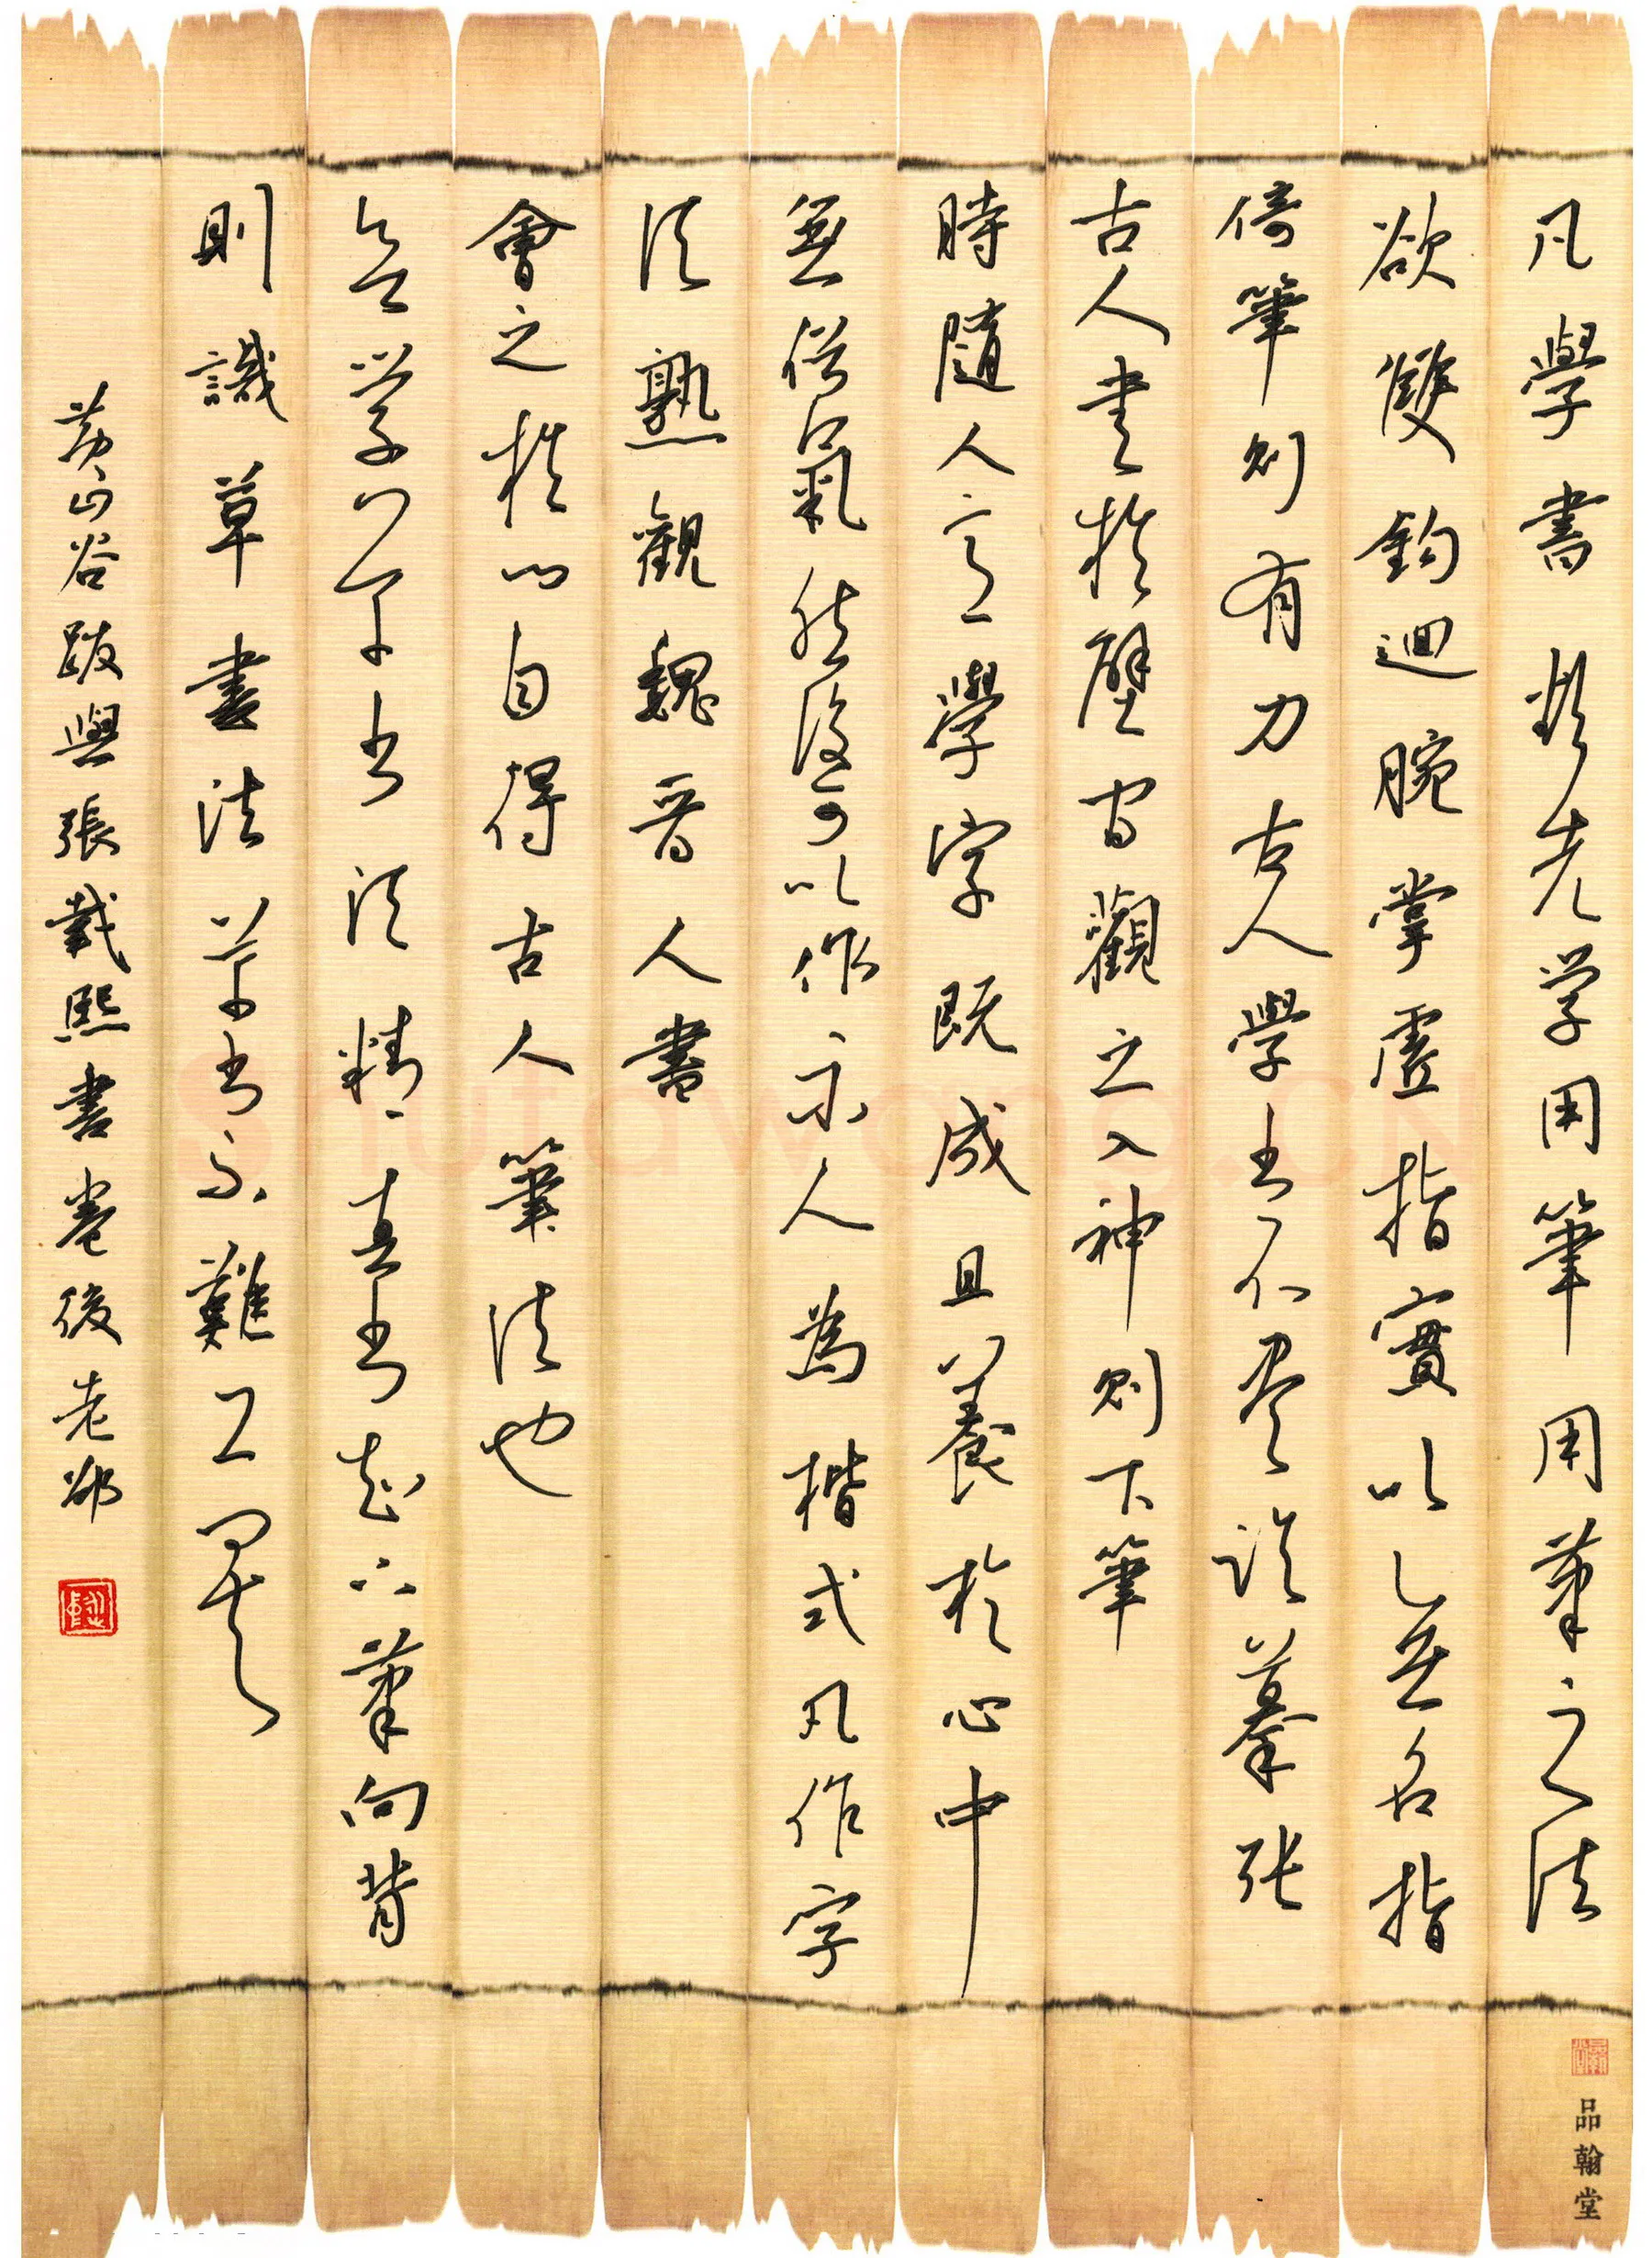 凡學書欲先学用筆用筆之法
欲雙鈎迴腕掌虛指實以無名指
倚筆則有力古人學書不盡臨摹張
古人書於壁間觀之入神則下筆
時隨人意學字既成且養於心中
無俗氣然後可以作示人為楷式凡作字
須熟觀魏晉人書
會之於心自得古人筆法也
欲学草書須精真書知下筆向背
則識草書法草書不難工矣
黃山谷跋與張載熙書卷後老邨
品翰堂